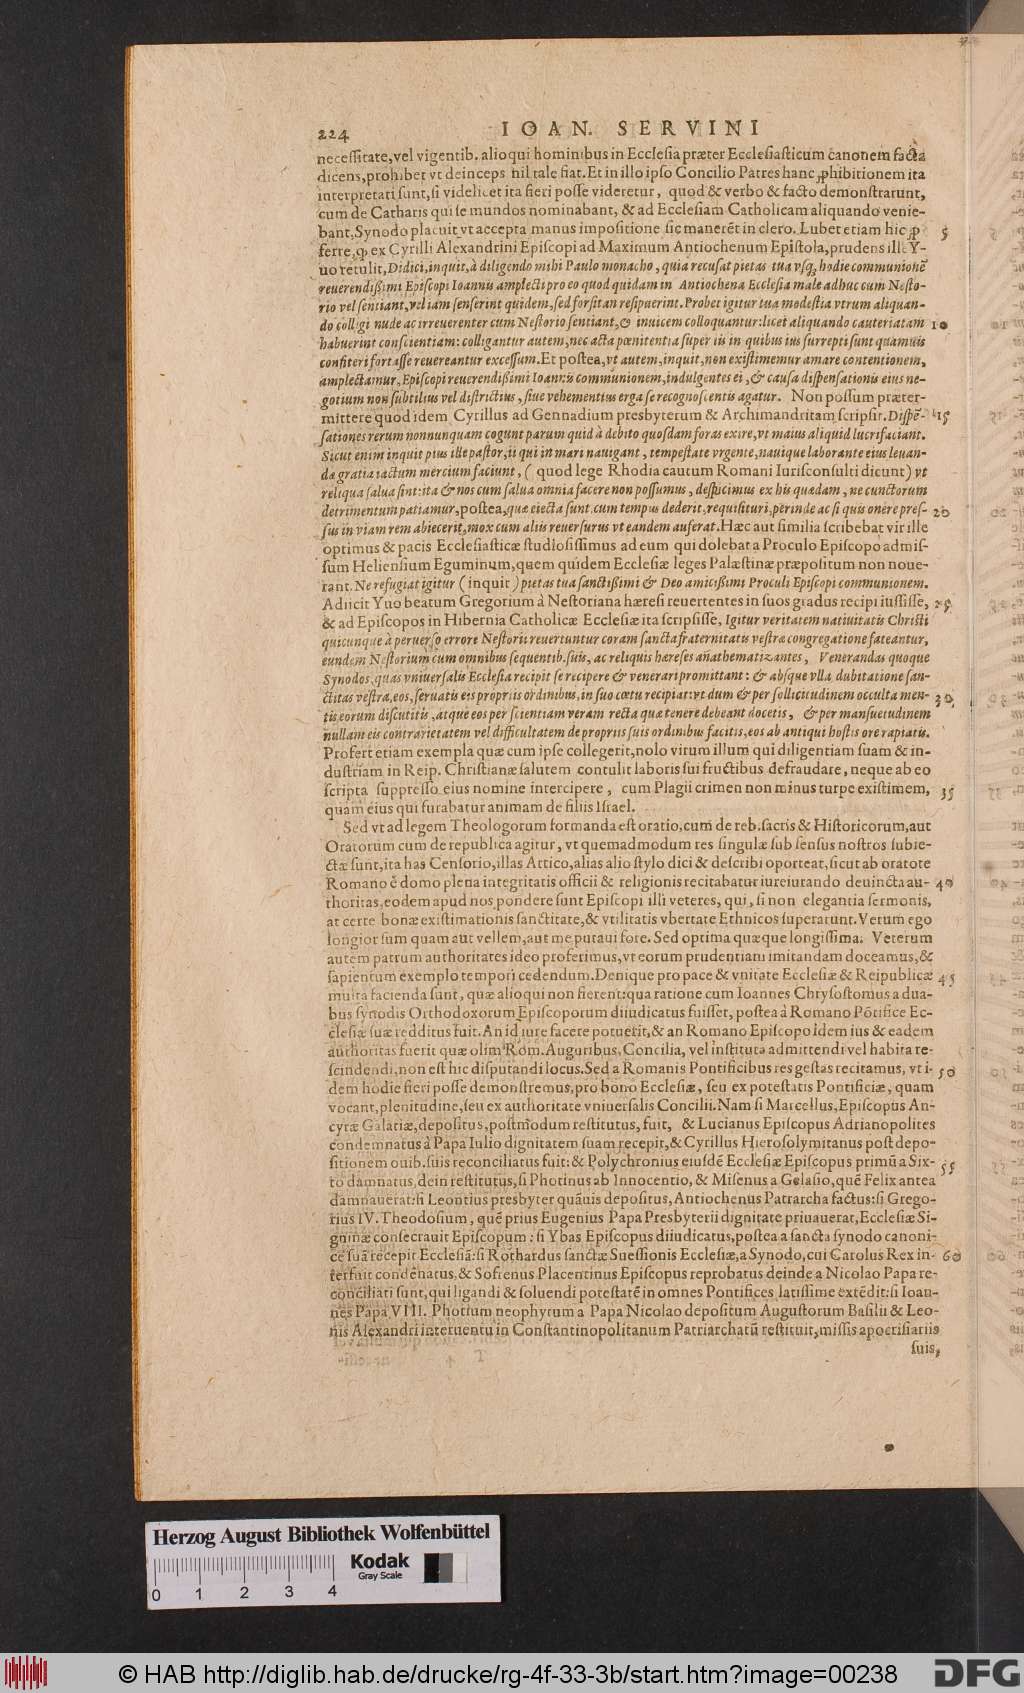 224 IOAN. SERVINI
neceſſitate,vel vigentib. alioqui hominibus in Eccleſia præter Eccleſiaſticum canonem facta
dicens,prohibet vt deinceps nil tale fiat. Et in illo ipſo Concilio Patres hanc ꝓhibitionem ita
interpretati ſunt,ſi videlicet ita fieri poſſe videretur, quod & verbo & facto demonſtrarunt,
cum de Catharis qui ſe mundos nominabant, & ad Eccleſiam Catholicam aliquando venie-
bant,Synodo placuit vt accepta manus impoſitione ſic manerēt in clero. Lubet etiam hic ꝓ 5
ferre,ꝙ ex Cyrilli Alexandrini Epiſcopi ad Maximum Antiochenum Epiſtola,prudens ille Y-
uo retulit,Didici,inquit,à diligendo mihi Paulo monacho, quia recuſat pietas tua vſq; hodie communionē
reuerendißimi Epiſcopi Ioannis amplecti pro eo quod quidam in Antiochena Eccleſia male adhuc cum Neſto-
rio vel ſentiant,vel iam ſenſerint quidem,ſed forſitan reſipuerint.Probet igitur tua modeſtia vtrum aliquan-
do colligi nude ac irreuerenter cum Neſtorio ſentiant,& inuicem colloquantur:licet aliquando cauteriatam 10
habuerint conſcientiam: colligantur autem,nec acta pœnitentia ſuper iis in quibus ius ſurrepti ſunt quamuis
confiteri fortaſſe reuereantur exceſſum.Et poſtea,vt autem,inquit,non exiſtimemur amare contentionem,
amplectamur, Epiſcopi reuerendißimi Ioannis communionem,indulgentes ei, & cauſa diſpenſationis eius ne-
gotium non ſubtilius vel diſtrictius, ſiue vehementius erga ſe recognoſcentis agatur. Non poſſum præter-
mittere quod idem Cyrillus ad Gennadium presbyterum & Archimandritam ſcripſit.Diſpē- 15
ſationes rerum nonnunquam cogunt parum quid à debito quoſdam foras exire,vt maius aliquid lucrifaciant.
Sicut enim inquit pius ille paſtor,ii qui in mari nauigant, tempeſtate vrgente,nauique laborante eius leuan-
da gratia iactum mercium faciunt, ( quod lege Rhodia cautum Romani Iuriſconſulti dicunt) vt
reliqua ſalua ſint:ita & nos cum ſalua omnia facere non poſſumus, deſpicimus ex his quædam, ne cunctorum
detrimentum patiamur,poſtea,quæ eiecta ſunt cum tempus dederit,requiſituri,perinde ac ſi quis onere preſ- 20
ſus in viam rem abiecerit,mox cum aliis reuerſurus vt eandem auferat.Hæc aut ſimilia ſcribebat vir ille
optimus & pacis Eccleſiaſticæ ſtudioſiſſimus ad eum qui dolebat a Proculo Epiſcopo admiſ-
ſum Helienſium Eguminum,quem quidem Eccleſiæ leges Palæſtinæ præpoſitum non noue-
rant.Ne refugiat igitur ( inquit ) pietas tua ſanctißimi & Deo amicißimi Proculi Epiſcopi communionem.
Adiicit Yuo beatum Gregorium à Neſtoriana hæreſi reuertentes in ſuos gradus recipi iuſſiſſe, 25
& ad Epiſcopos in Hibernia Catholicæ Eccleſiæ ita ſcripſiſſe, Igitur veritatem natiuitatis Chriſti
quicunque à peruerſo errore Neſtorii reuertuntur coram ſancta fraternitatis veſtræ congregatione fateantur,
eundem Neſtorium cum omnibus ſequentib.ſuis, ac reliquis hæreſes anathematizantes, Venerandas quoque
Synodos,quas vniuerſalis Eccleſia recipit ſe recipere & venerari promittant: & abſque vlla dubitatione ſan-
ctitas veſtra,eos,ſeruatis eis propriis ordinibus,in ſuo cœtu recipiat:vt dum & per ſollicitudinem occulta men- 30
tis eorum diſcutitis, atque eos per ſcientiam veram recta quæ tenere debeant docetis, & per manſuetudinem
nullam eis contrarietatem vel difficultatem de propriis ſuis ordinibus facitis,eos ab antiqui hoſtis ore rapiatis.
Profert etiam exempla quæ cum ipſe collegerit,nolo virum illum qui diligentiam ſuam & in-
duſtriam in Reip. Chriſtianæ ſalutem contulit laboris ſui fructibus defraudare, neque ab eo
ſcripta ſuppreſſo eius nomine intercipere, cum Plagii crimen non minus turpe exiſtimem, 35
quam eius qui furabatur animam de filiis Iſrael.
Sed vt ad legem Theologorum formanda eſt oratio,cum de reb.ſacris & Hiſtoricorum,aut
Oratorum cum de republica agitur, vt quemadmodum res ſingulæ ſub ſenſus noſtros ſubie-
ctæ ſunt,ita has Cenſorio,illas Attico,alias alio ſtylo dici & deſcribi oporteat,ſicut ab oratore
Romano è domo plena integritatis officii & religionis recitabatur iureiurando deuincta au- 40
thoritas,eodem apud nos pondere ſunt Epiſcopi illi veteres, qui, ſi non elegantia ſermonis,
at certe bonæ exiſtimationis ſanctitate,& vtilitatis vbertate Ethnicos ſuperarunt. Verum ego
longior ſum quam aut vellem,aut me putaui fore. Sed optima quæque longiſſima. Veterum
autem patrum authoritates ideo proferimus,vt eorum prudentiam imitandam doceamus,&
ſapientum exemplo tempori cedendum.Denique pro pace & vnitate Eccleſiæ & Reipublicæ 45
multa facienda ſunt, quæ alioqui non fierent:qua ratione cum Ioannes Chryſoſtomus a dua-
bus ſynodis Orthodoxorum Epiſcoporum diiudicatus fuiſſet, poſtea à Romano Pōtifice Ec-
cleſiæ ſuæ redditus fuit. An id iure facere potuerit,& an Romano Epiſcopo idem ius & eadem
authoritas fuerit quæ olim Rom.Auguribus, Concilia, vel inſtituta admittendi vel habita re-
ſcindendi,non eſt hic diſputandi locus.Sed a Romanis Pontificibus res geſtas recitamus, vt i- 50
dem hodie fieri poſſe demonſtremus,pro bono Eccleſiæ, ſeu ex poteſtatis Pontificiæ, quam
vocant,plenitudine,ſeu ex authoritate vniuerſalis Concilii. Nam ſi Marcellus,Epiſcopus An-
cyræ Galatiæ,depoſitus,poſtmodum reſtitutus, fuit, & Lucianus Epiſcopus Adrianopolites
condemnatus à Papa Iulio dignitatem ſuam recepit,& Cyrillus Hieroſolymitanus poſt depo-
ſitionem ouib.ſuis reconciliatus fuit: & Polychronius eiuſdē Eccleſiæ Epiſcopus primū a Six- 55
to damnatus,dein reſtitutus,ſi Photinus ab Innocentio, & Miſenus a Gelaſio,quē Felix antea
damnauerat:ſi Leontius presbyter quāuis depoſitus,Antiochenus Patrarcha factus:ſi Grego-
rius IV. Theodoſium, quē prius Eugenius Papa Presbyterii dignitate priuauerat,Eccleſiæ Si-
gninæ conſecrauit Epiſcopum : ſi Ybas Epiſcopus diiudicatus,poſtea a ſancta ſynodo canoni-
cē ſuā recepit Eccleſiā:ſi Rothardus ſanctæ Sueſſionis Eccleſiæ,a Synodo,cui Carolus Rex in- 60
terfuit condēnatus,& Sofrenus Placentinus Epiſcopus reprobatus deinde a Nicolao Papa re-
conciliati ſunt,qui ligandi & ſoluendi poteſtatē in omnes Pontifices latiſſime extēdit:ſi Ioan-
nes Papa VIII. Photium neophytum a Papa Nicolao depoſitum Auguſtorum Baſilii & Leo-
nis Alexandri interuentu in Conſtantinopolitanum Patriarchatū reſtituit,miſſis apocriſiariis
ſuis,
Herzog August Bibliothek Wolfenbüttel
Kodak
Gray Scale
0 1 2 3 4
© HAB http://diglib.hab.de/drucke/rg-4f-33-3b/start.htm?image=00238 DFG